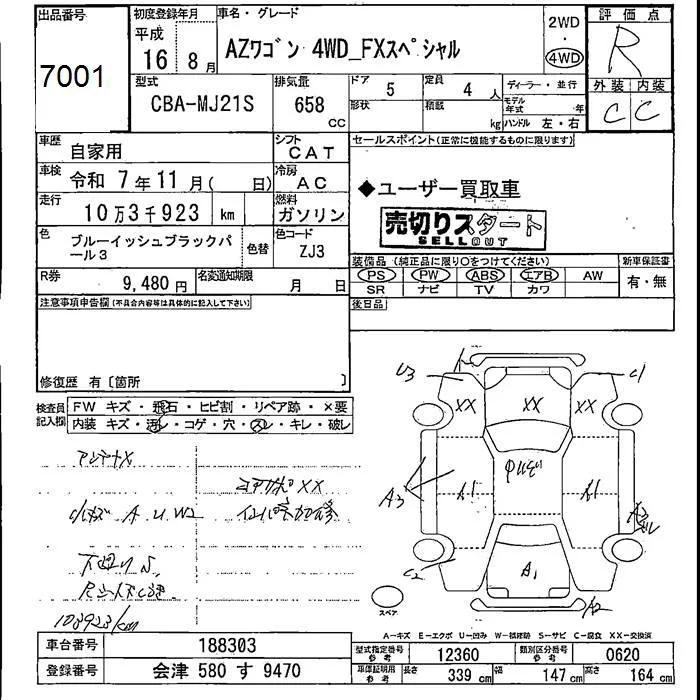 出品番号
7001
初度登録年月
平成
16年 8月
車名・グレード
AZﾜｺﾞﾝ 4WD_FXｽﾍﾟｼｬﾙ
2WD
・
4WD
評価点
R
外装 内装
C C
型式
CBA-MJ21S
排気量
658
CC
ドア
5
定員
4 人
形状
積載
kg
ディーラー・並行
モデル年式 年
ハンドル 左・右
車歴
自家用
シフト
CAT
車検
令和 7年11月( 日)
冷房
AC
走行
10万3千923 km
燃料
ガソリン
色
ブルーイッシュブラックパール3
色替
色コード
ZJ3
R券
9,480円
名変通知期限
月 日
セールスポイント(正常に機能するものに限ります)
◆ユーザー買取車
売切りスタート
SELLOUT
装備品 (純正品に限り○をつけてください)
PS PW ABS エアB AW
SR ナビ TV カワ
新車保証書
有・無
後日品
注意事項申告欄(不具合内容等は具体的に記入して下さい)
修復歴 有〔箇所 〕
検査員記入欄
FW キズ・飛石・ヒビ割・リペア跡・×要
内装 キズ・汚レ・コゲ・穴・スレ・キレ・破レ
アンテナX
XX
A U W2
下廻りS
103923km
U3
C1
XX
XX
XX
A3
A1
A1
A3
C2
A1
A2
スペア
A-キズ E-エクボ U-凹み W-補修跡 S-サビ C-腐食 XX-交換済
車台番号
188303
登録番号
会津 580 す 9470
型式指定番号
参考
12360
類別区分番号
参考
0620
車体証明用
参考
長さ
339 cm
幅
147 cm
高さ
164 cm